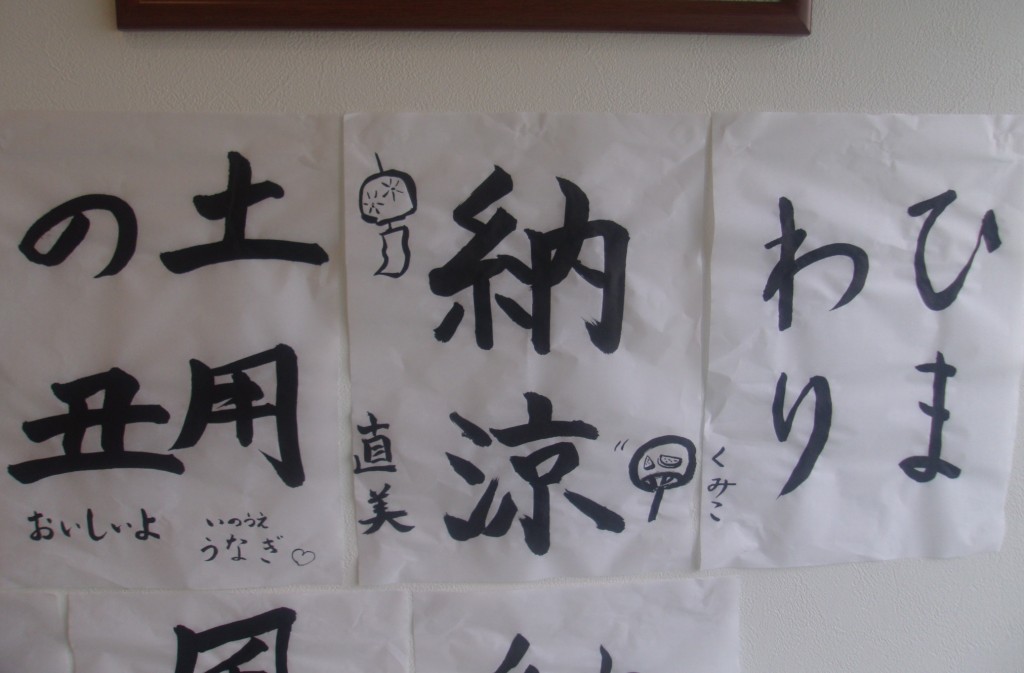 ひま
わり
くみこ
納涼
直美
土用
の丑
いのうえ
うなぎ♡
おいしいよ